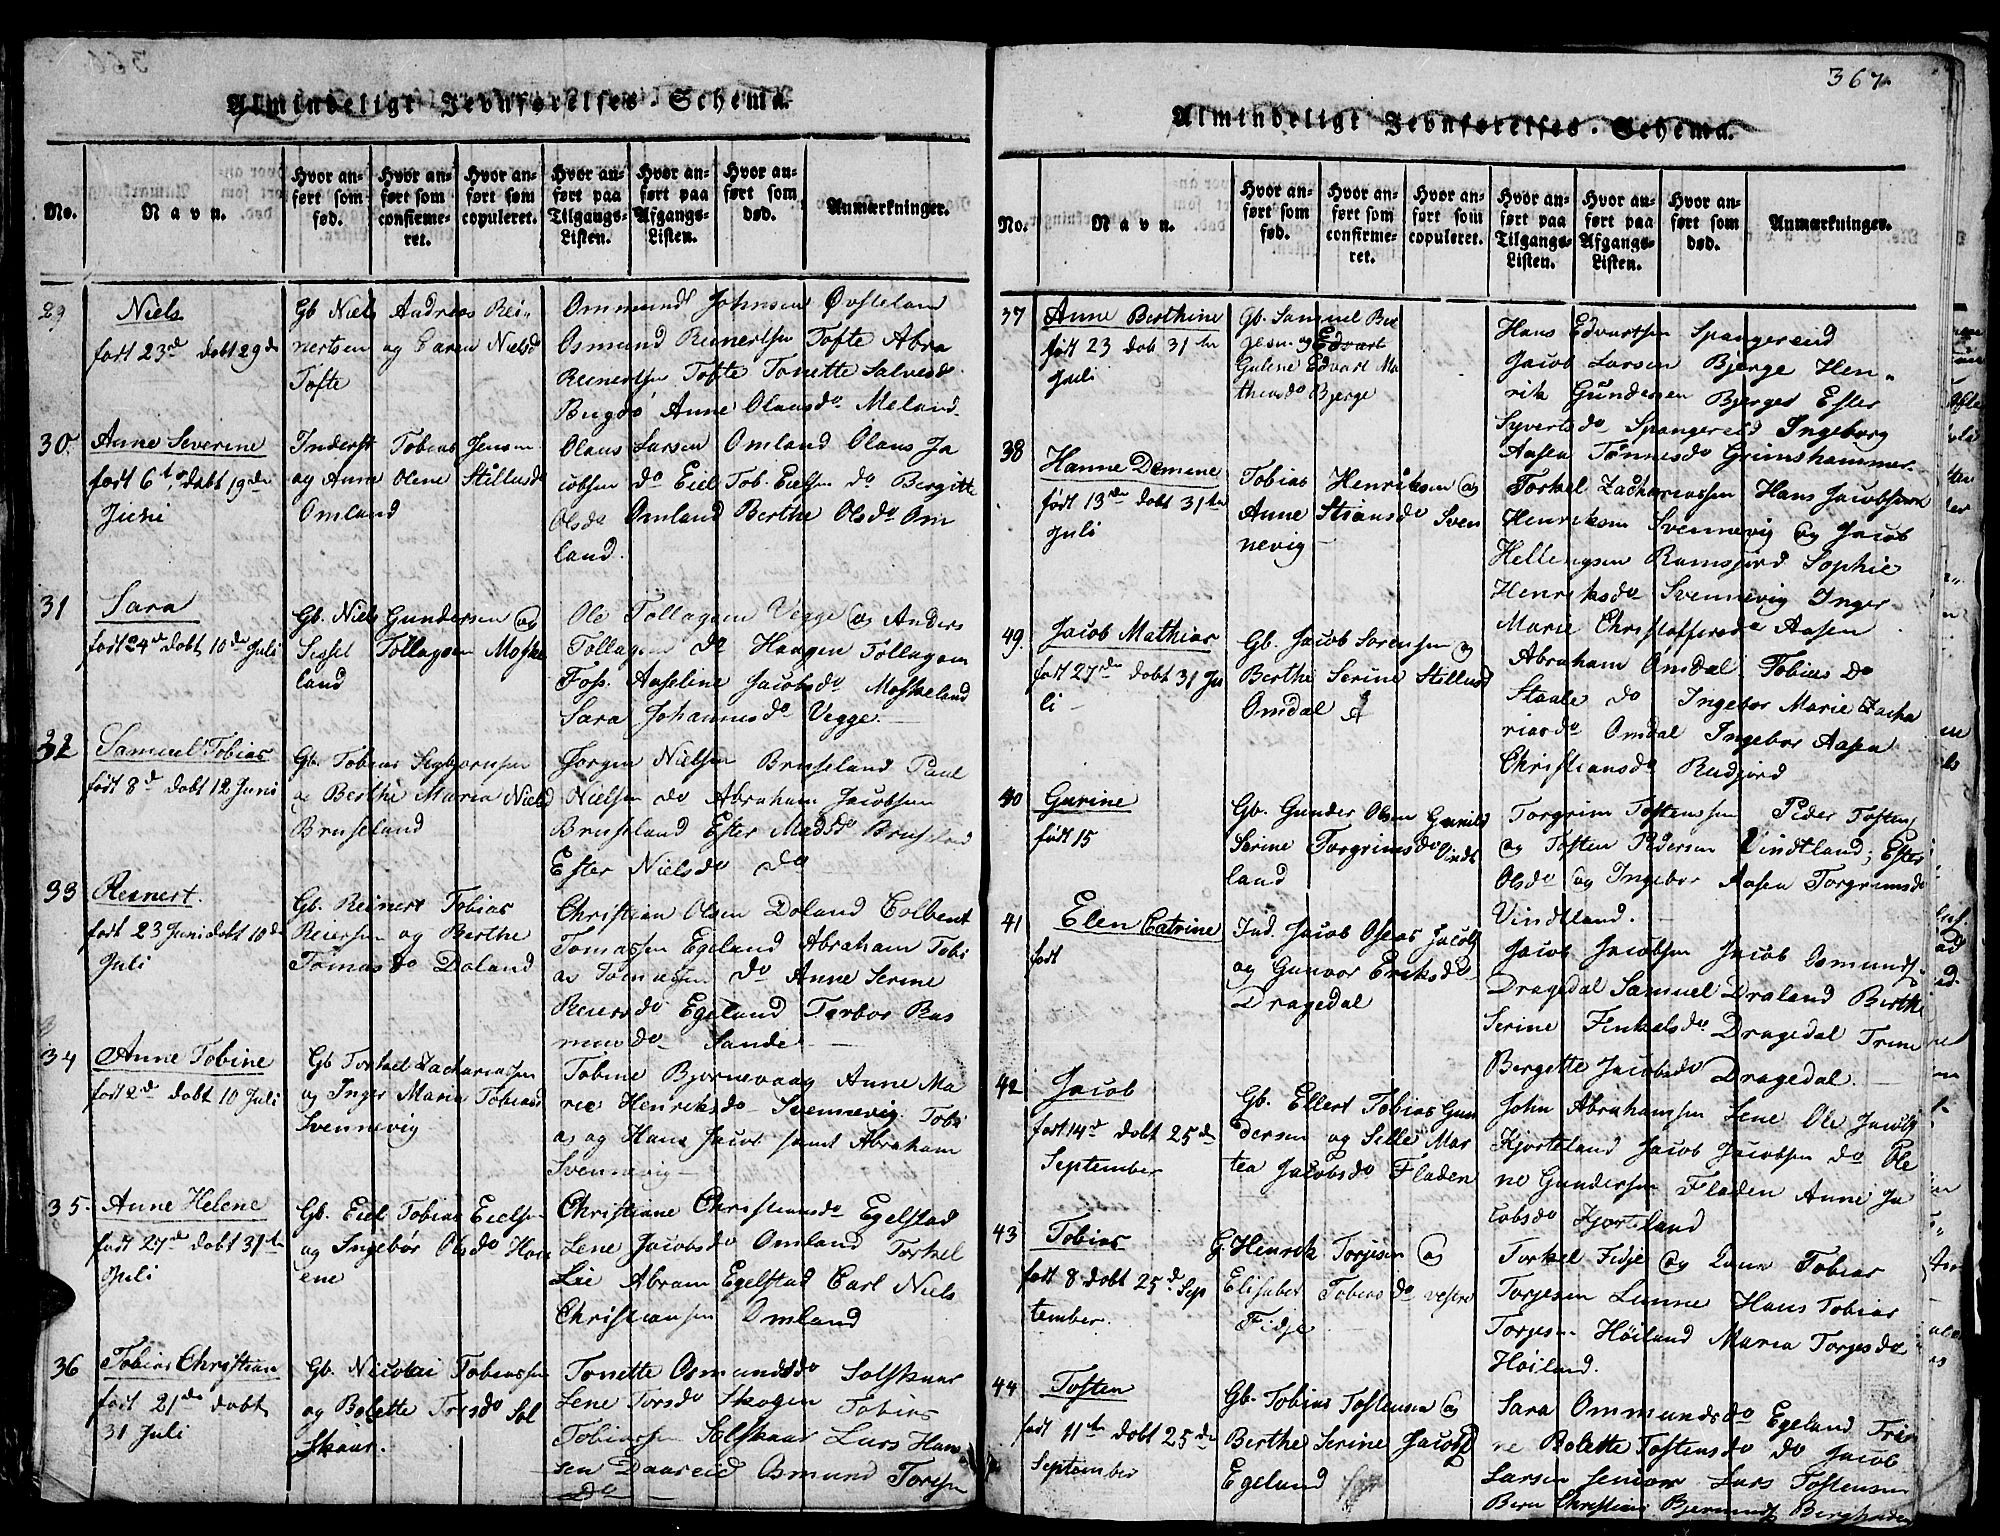 Almindeligt Jevnførelses-Schema.
No.
Navn.
Hvor anført som fød.
Hvor anført som confirmeret.
Hvor anført som copuleret.
Hvor anført paa Tilgangs-Listen.
Hvor anført paa Afgangs-Listen.
Hvor anført som død.
Anmærkninger.
29
Niels
født 23d døbt 29de
Gb Niels Andreas Rei-
nertsen og Caren Nielsd
Tofte
Ommund Johnsen Øvsteland
Osmund Reinertsen Tofte Abra
Reinertsen Tofte Tonette Salvesdr
Bugdø Anne Olausdr Meland
30.
Anne Severine
født 6te døbt 19de
Juni
Inderst Tobias Jensen
og Anne Olene Stillusd
Omland
Olaus Larsen Omland Olaus Ja
cobsen do Eiel Tob. Eielsen do Bergitte
Olsdr Omland Berthe Olsdr Om
land.
31
Sara
født 24d døbt 10de Juli
Gb. Niels Gundersen og
Sissel Tollagsen Moske
land
Ole Tollagsen Vegge og Anders
Tollagsen do Haagen Tollagsen
Foss. Aaseline Jacobsdr Moskeland
Sara Johannesdr Vegge.
32
Samuel Tobias
født 8d døbt 12 Juni
Gb. Tobias Sigbjornsen
og Berthe Maria Nielsd
Bruseland
Jørgen Nielsen Bruseland Paul
Nielsen do Abraham Jacobsen
Bruseland Ester Madsdr Bruseland
Ester Nielsdr do
33
Reinert.
født 23 Juni døbt 10de
Juli
Gb. Reinert Tobias
Reiersen og Berthe
Tomasdr Doland
Christian Olsen Doland Colbent
Tomassen Egeland Abraham Tobi
as Tomassen do Anne Serine
Reiersdr Egeland Torbor Ras
musdr Sande
34
Anne Tobine
født 2d døbt 10 Juli
Gb Torkel Zachariasen
og Inger Marie Tobiasd
Svennevig
Tobine Bjornevaag Anne Ma
rie Henriksdr Svennevig. Tobi
as og Hans Jacob samt Abraham
Svennevig
35.
Anne Helene
født 27d døbt 31te
Juli
Gb. Eiel Tobias Eielsen
og Ingebor Olsdr
ene
Christiane Christiansdr Egelstad
Lene Jacobsdr Omland Torkel
Lie Abram Egelstad Carl Niels
Christiansen Omland
36
Tobias Christian
født 21de døbt
31 Juli
Gb. Nicolai Tobiassen
og Bolette Torsdr Sol
skaar.
Tonette Osmundsdr Solskaar
Lene Torsdr Skogen Tobias
Tobiassen Solskaar Lars Han
sen Daareid Osmund Torsen
do
367.
Almindeligt Jevnførelses-Schema.
No.
Navn.
Hvor anført som fød.
Hvor anført som confirmeret.
Hvor anført som copuleret.
Hvor anført paa Tilgangs-Listen.
Hvor anført paa Afgangs-Listen.
Hvor anført som død.
Anmærkninger.
37
Anne Berthine
født 23 døb 31te
Juli
Gb. Samuel Ber
gesen og Edvart
Gulene Edvart Ma
theusdr Bjerge
Hans Edvartsen Spangereid
Jacob Larsen Bjerge Hen-
rik Gundersen Bjerge Ester
Syvertsdr Spangereid Ingeborg
Aasen Tønnesdr Grimshammer
38
Hanne Demene
født 13de døbt 31te
Juli
Tobias Henriksen og
Anne Stiansdr Sven
nevig
Torkel Zachariassen Hans Jacobsen
Henriksen Svennevig og Jacob
Hellengsen Ramsfjord Sophie
Henriksdr Svennevig Inger
Marie Christoffersdr Aasen
49.
Jacob Mathias
født 27de døbt 31 Ju
li
Gb. Jacob Sorensen og
Berthe Serine Stillusd
Omdal
Abraham Omdal Tobias do
Staale do Ingebor Marie Zacha
riasdr Omdal Ingebor Aasen
Christiansdr Redjord
40
Gurine
født 15
Gb. Gunder Olsen Gunild
Serine Torgrimsdr Vindt
land
Torgrim Tostensen Peder Tosten
og Tosten Pedersen Vindtland; Ester
Olsdr og Ingebor Aasen Torgrimsdr
Vindtland.
41
Elen Catrine
født
Ind. Jacob Oseas Jacobs
og Gunvor Eriksdr
Dragedal
Jacob Jacobsen Jacob Osmunds
Dragedal Samuel Draland Berthe
Serine Finkelsdr Dragedal Trine
Bergette Jacobsdr Dragedal.
42
Jacob
født 14d døbt 25de
September
Gb. Ellert Tobias Gun
dersen og Sille Mar
tea Jacobsdr Fladen
John Abrahamsen Lene Ole Jacobs
Kjorteland Jacob Jacobsen do Ole
ne Gundersen Fladen Anne Ja
cobsdr Kjorteland
43
Tobias
født 8 døbt 25d Sep
tember.
G. Henrik Torjesen og
Elisabet Tobiasdr vestre
Fidje
Torkel Fidje og Tobias
Torjesen Lunne Hans Tobias
Torjesen Høiland Maria Torjesdr
Høiland.
44
Tosten
født 11te døbt 25de
September
Gb. Tobias Tostensen og
Berthe Serine Jacobsd
Egeland
Sara Ommundsdr Egeland Tri
ne Bolette Tostensdr do Jacob
Larsen senior Lars Tostensen
Bern Christians Bjermunds